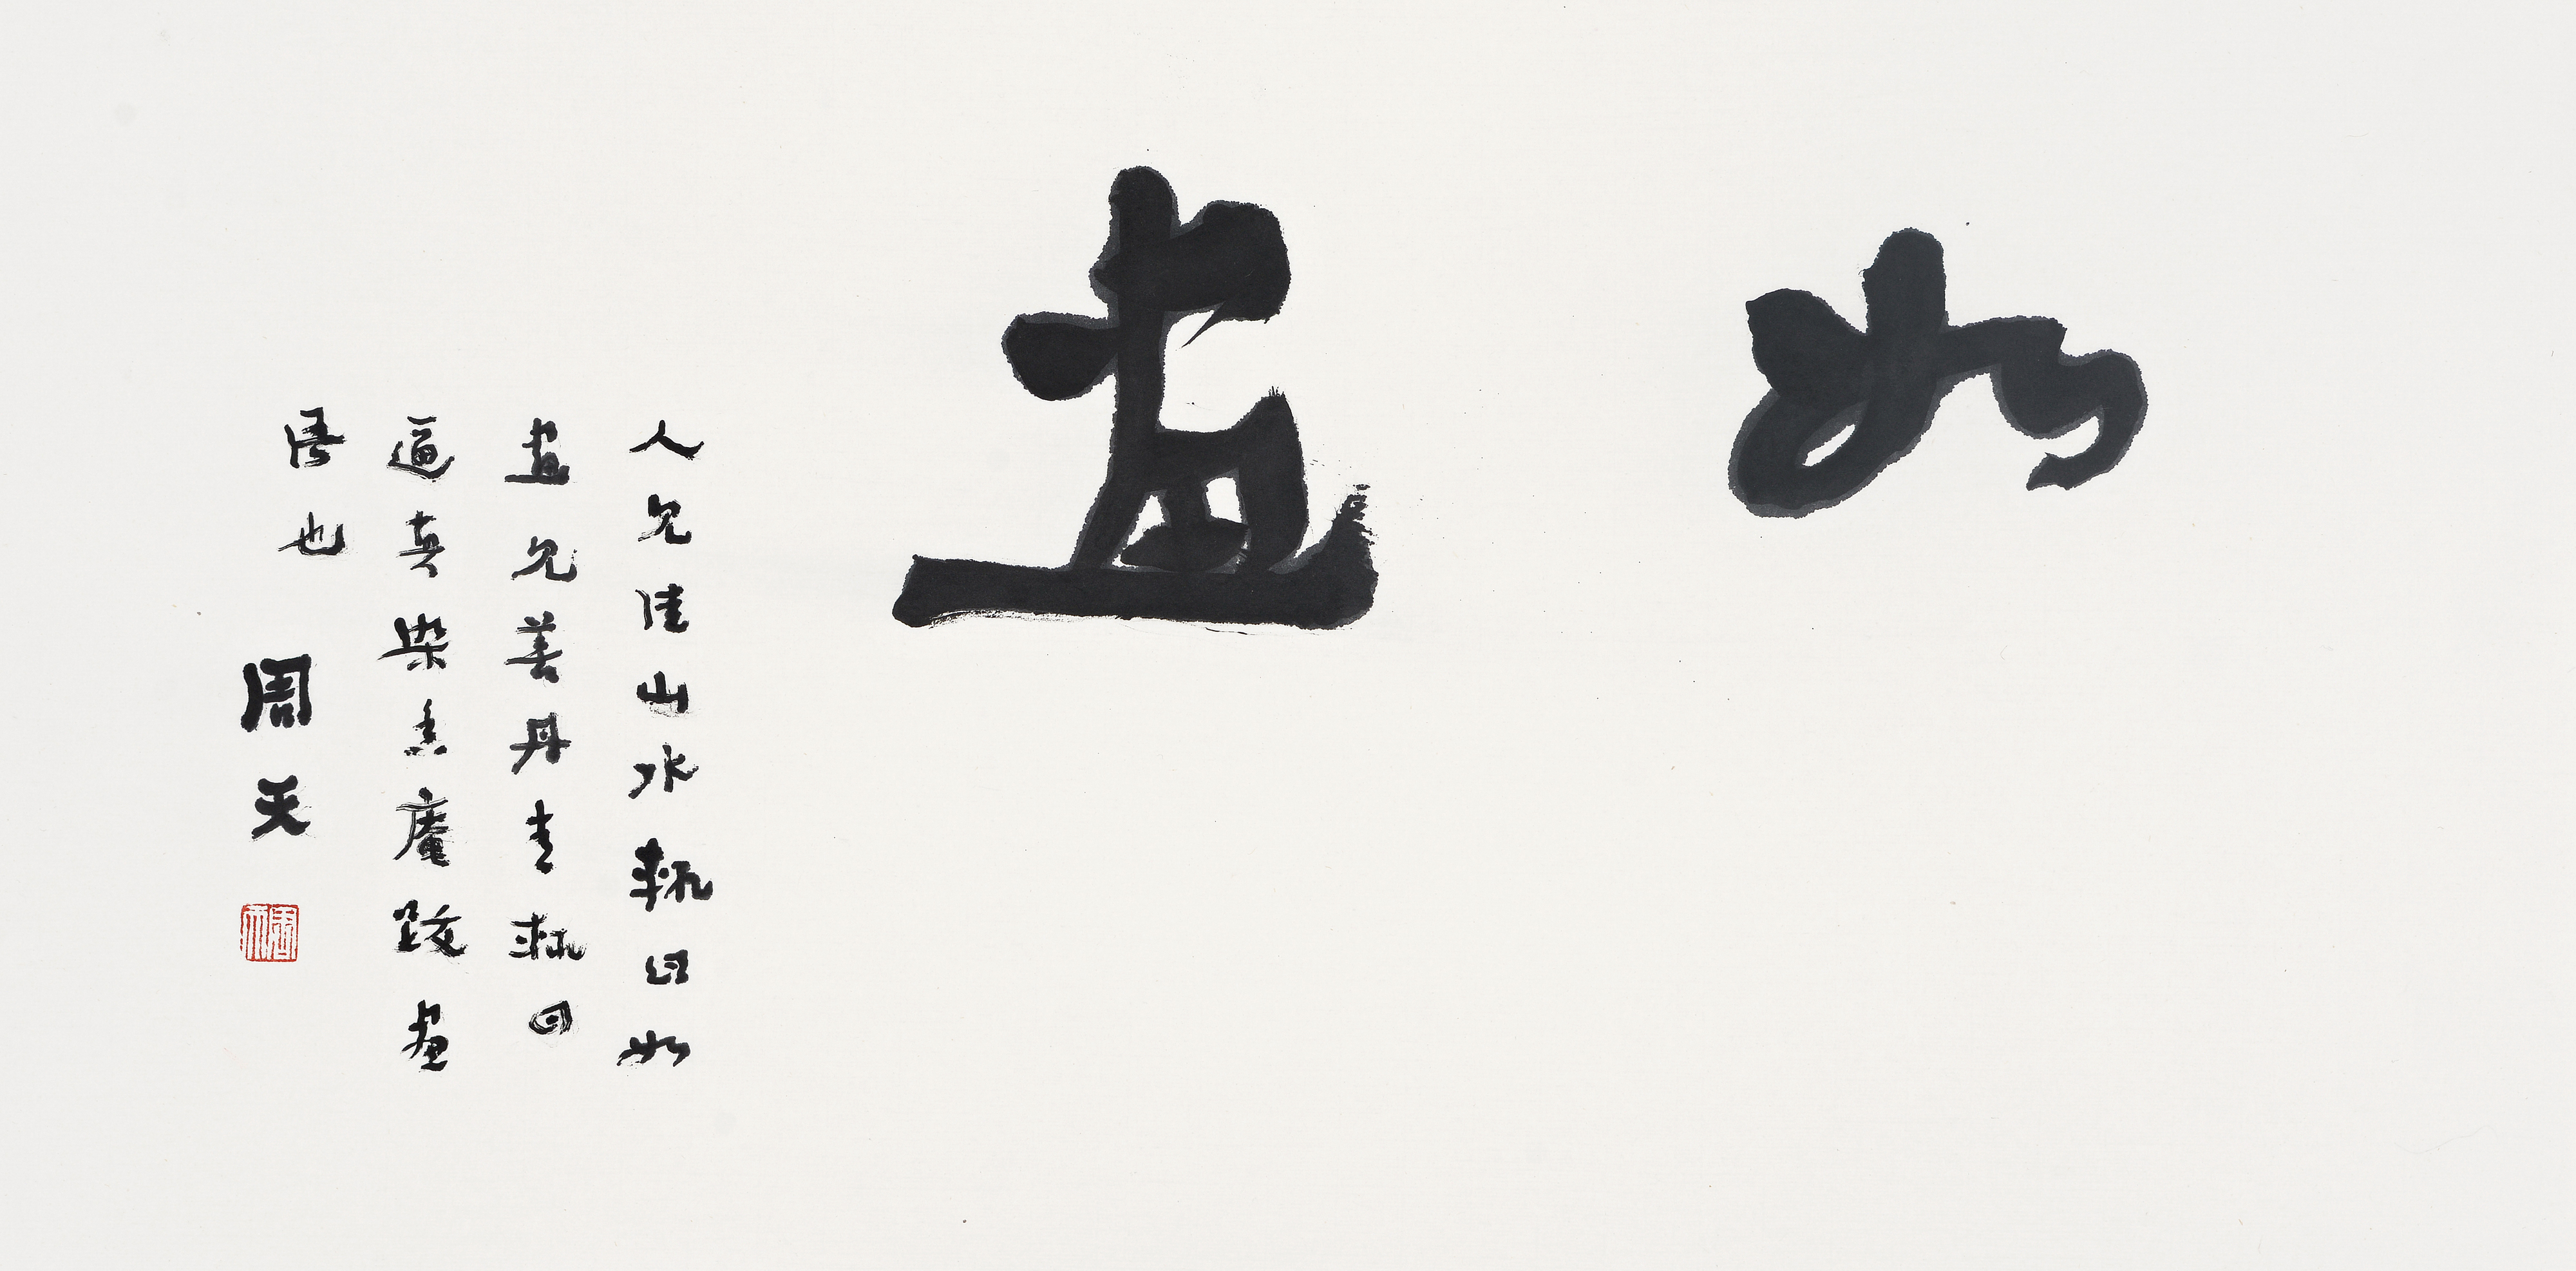 如畫
人見佳山水輒曰如
畫見善丹青輒曰
逼真染香庵跋畫
語也 周天